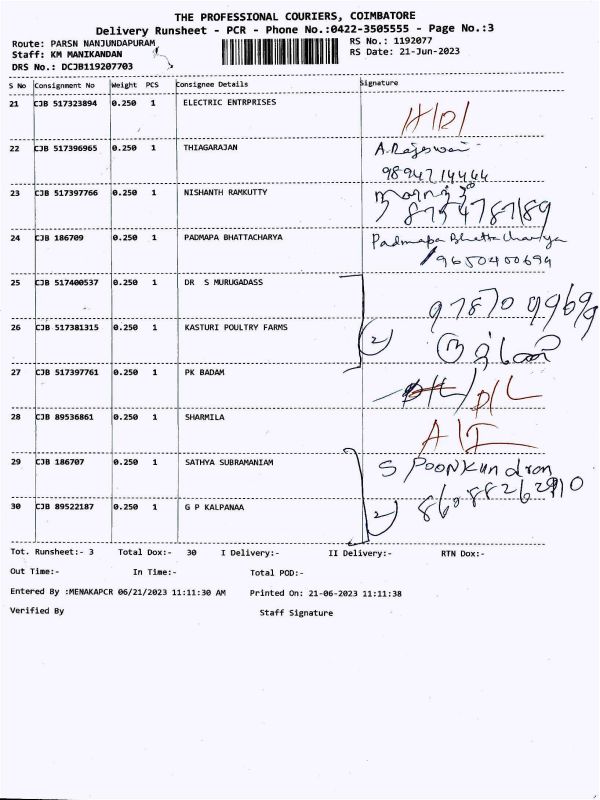 THE PROFESSIONAL COURIERS, COIMBATORE
Delivery Runsheet - PCR - Phone No.:0422-3505555 - Page No.:3
Route: PARSN NANJUNDAPURAM
RS No.: 1192077
Staff: KM MANIKANDAN
RS Date: 21-Jun-2023
DRS No.: DCJB119207703
S No Consignment No Weight PCS Consignee Details Signature
21 CJB 517323894 0.250 1 ELECTRIC ENTRPRISES
22 CJB 517396965 0.250 1 THIAGARAJAN A.Rajeswari
9894714444
23 CJB 517397766 0.250 1 NISHANTH RAMKUTTY
8754787189
24 CJB 186709 0.250 1 PADMAPA BHATTACHARYA Padmapa Bhattacharya
9650400694
25 CJB 517400537 0.250 1 DR S MURUGADASS
97870 99699
26 CJB 517381315 0.250 1 KASTURI POULTRY FARMS 2
27 CJB 517397761 0.250 1 PK BADAM D/L
28 CJB 89536861 0.250 1 SHARMILA
29 CJB 186707 0.250 1 SATHYA SUBRAMANIAM S POONKUNDRAN
8608826290
30 CJB 89522187 0.250 1 G P KALPANAA 2
Tot. Runsheet:- 3 Total Dox:- 30 I Delivery:- II Delivery:- RTN Dox:-
Out Time:- In Time:- Total POD:-
Entered By :MENAKAPCR 06/21/2023 11:11:30 AM Printed On: 21-06-2023 11:11:38
Verified By Staff Signature